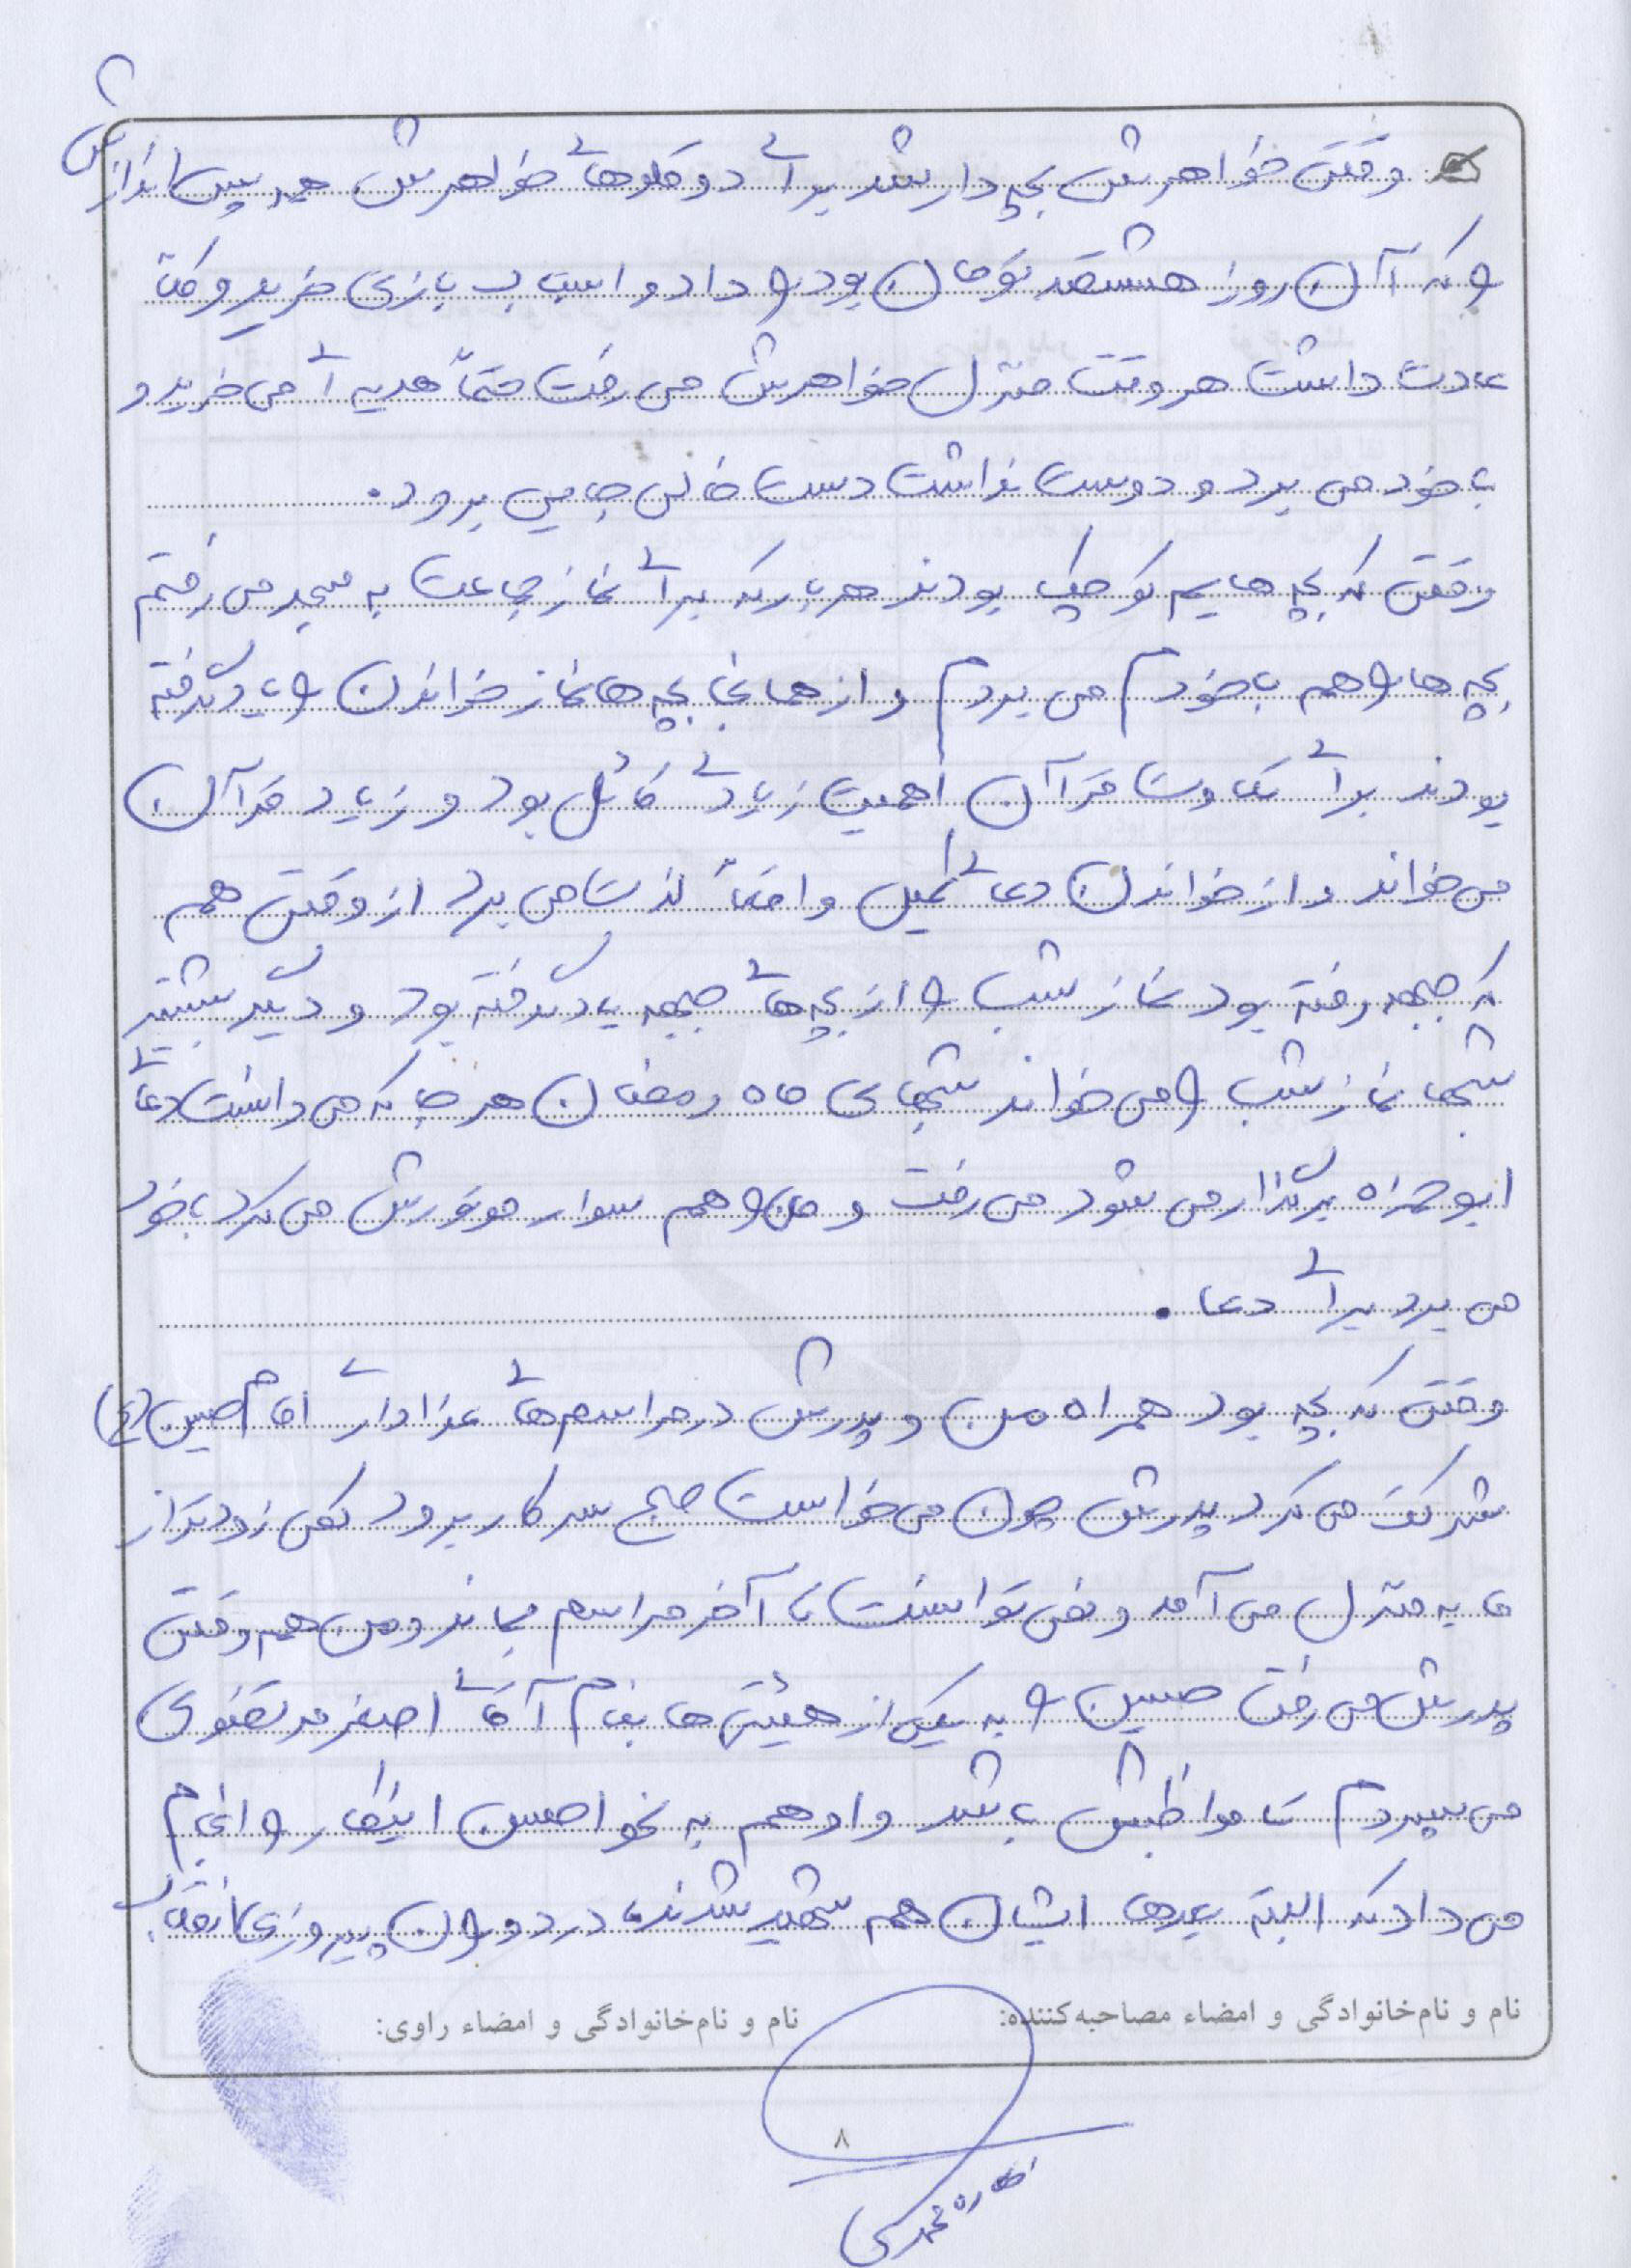 وقتی خواهرش بچه دار شد برای دوقلوهای خواهرش همه پس اندازش
را که آن روز هشتصد تومان بود را داد و اسباب بازی خرید و کلا
عادت داشت هر وقت منزل خواهرش می رفت حتماً هدیه ای می خرید و
با خود می برد و دوست نداشت دست خالی جایی برود.
وقتی که بچه هایم کوچک بودند هر بار که برای نماز جماعت به مسجد می رفتم
بچه ها را هم با خودم می بردم و از همانجا بچه ها نماز خواندن را یاد گرفته
بودند برای تلاوت قرآن اهمیت زیادی قائل بود و زیاد قرآن
می خواند و از خواندن دعای کمیل واقعاً لذت می برد از وقتی هم
که جبهه رفته بود نماز شب را از بچه های جبهه یاد گرفته بود و دیگر بیشتر
شبها نماز شب را می خواند شبهای ماه رمضان هر جا که می دانست دعای
ابوحمزه برگزار می شود می رفت و من را هم سوار موتورش می کرد با خود
می برد برای دعا.
وقتی که بچه بود همراه من و پدرش در مراسم های عزاداری امام حسین (ع)
شرکت می کرد پدرش چون می خواست صبح سر کار برود کمی زودتر از
ما به منزل می آمد و نمی توانست تا آخر مراسم بماند و من هم وقتی
پدرش می رفت حسین را به یکی از هیئتی ها بنام آقای اصغر مرتضوی
می سپردم تا مواظبش باشد و او هم به نحو احسن اینکار را انجام
می داد که البته بعدها ایشان هم شهید شدند در دوران پیروزی انقلاب.
نام و نام‌خانوادگی و امضاء مصاحبه‌کننده:
نام و نام‌خانوادگی و امضاء راوی:
۸